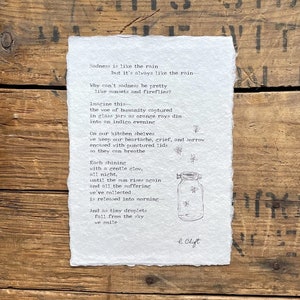 Sadness is like the rain
but it's always like the rain
Why can't sadness be pretty
like sunsets and fireflies?
Imagine this—
the woe of humanity captured
in glass jars as orange rays dim
into an indigo evening
On our kitchen shelves
we keep our heartache, grief, and sorrow
encased with punctured lids
so they can breathe
Each shining
with a gentle glow,
all night,
until the sun rises again
and all the suffering
we've collected
is released into morning
And as tiny droplets
fall from the sky
we smile
R. Clift